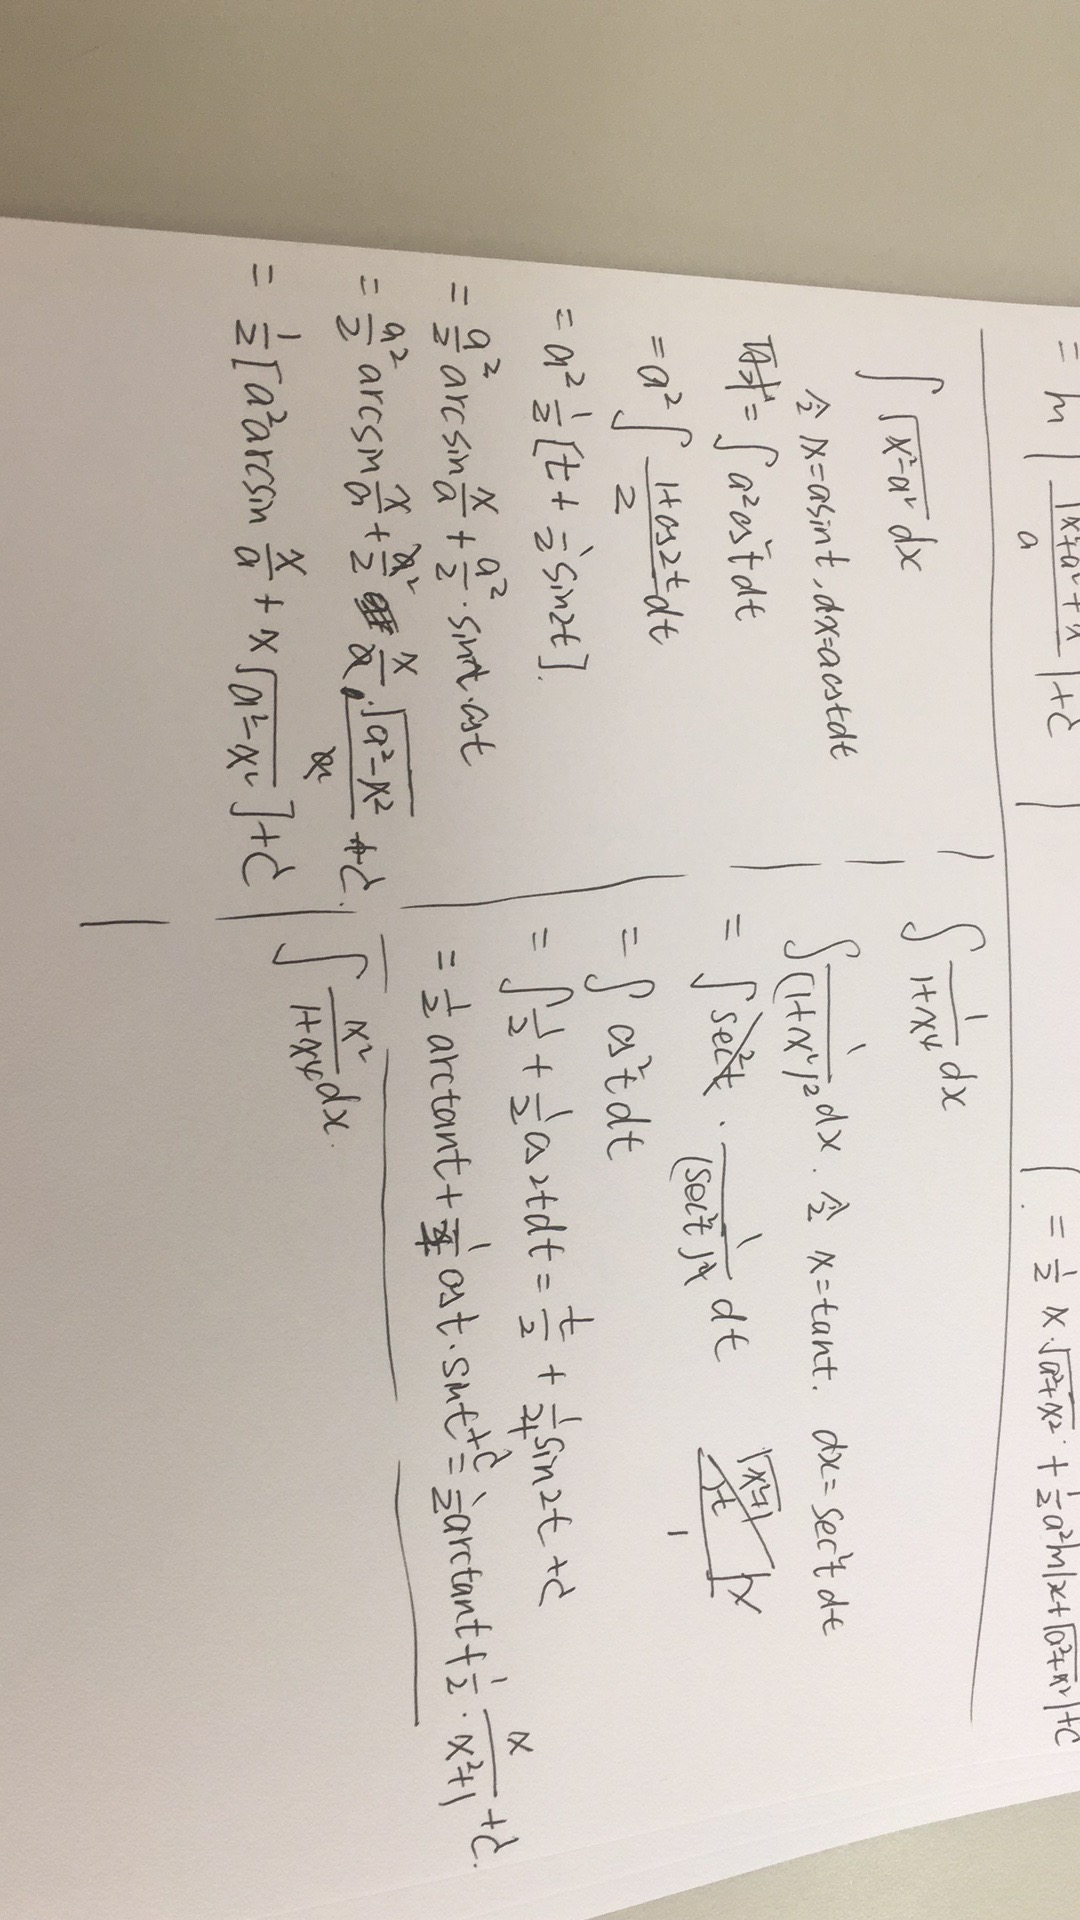 = ln | (√(x²+a²) + x)/a | + C
= 1/2 x·√(a²+x²) + 1/2 a² ln|x+√(a²+x²)| + C
∫ √(x²-a²) dx
令 x=asint, dx=acostdt
原式 = ∫ a²cos²t dt
= a² ∫ (1+cos2t)/2 dt
= a² 1/2 [t + 1/2 sin2t].
= a²/2 arcsin x/a + a²/2 · sint·cost
= a²/2 arcsin x/a + a²/2 x/a · √(a²-x²)/a + C.
= 1/2 [a² arcsin x/a + x√(a²-x²)] + C
∫ 1/(1+x⁴) dx
∫ 1/(1+x²)² dx. 令 x=tant. dx=sec²t dt
= ∫ sec²t · 1/(sec²t)² dt
√(x²+1) t x 1
= ∫ cos²t dt
= ∫ 1/2 + 1/2 cos2tdt = t/2 + 1/4 sin2t + C
= 1/2 arctant + 1/2 cost·sint + C = 1/2 arctant + 1/2 · x/(x²+1) + C.
∫ x²/(1+x⁴) dx.